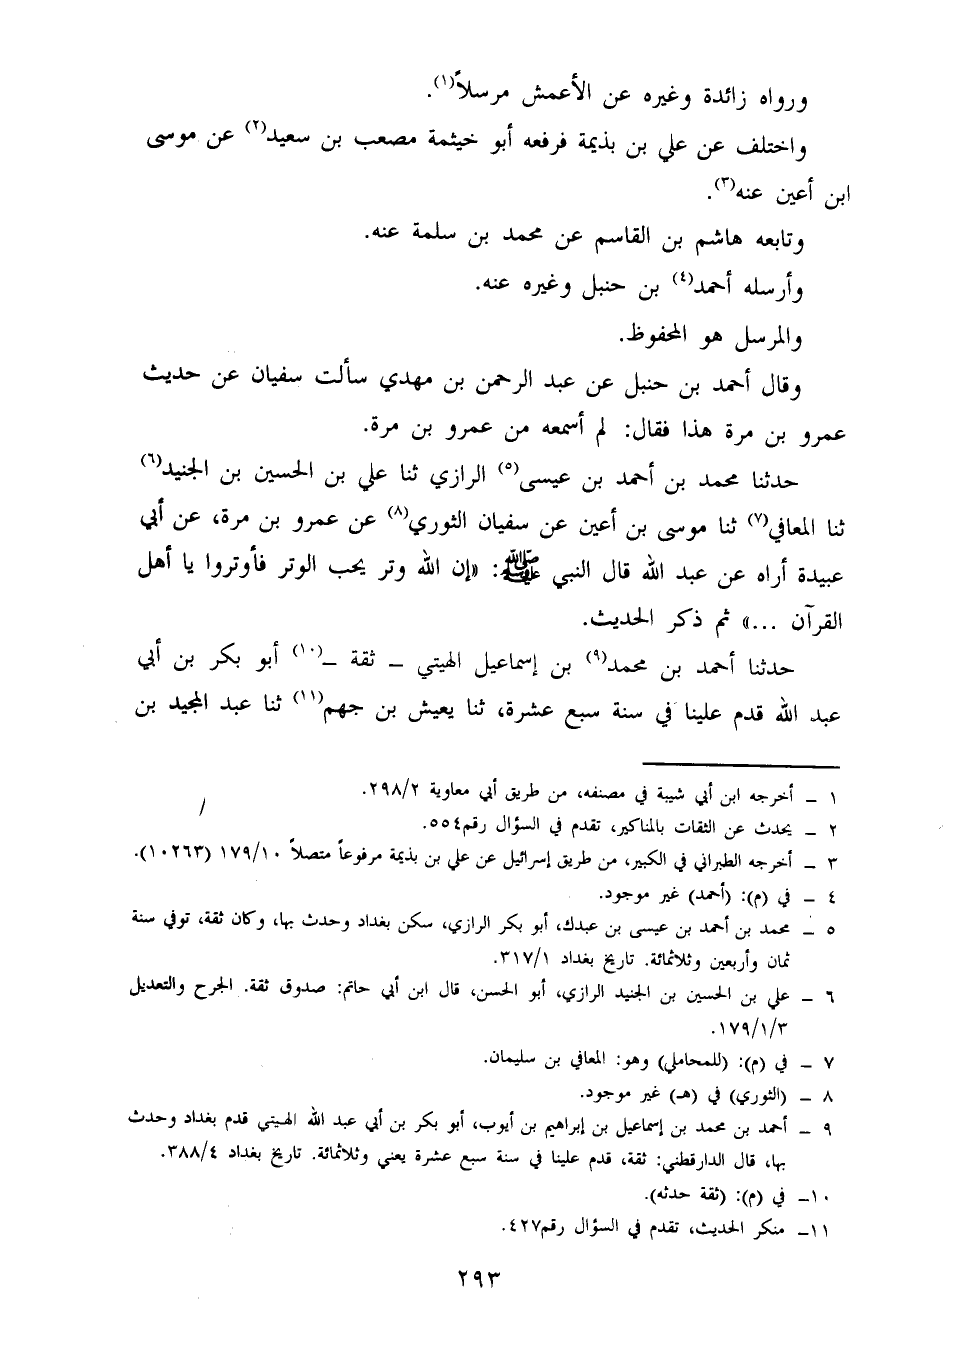 ورواه زائدة وغيره عن الأعمش مرسلاً(١).
واختلف عن علي بن بذيمة فرفعه أبو خيثمة مصعب بن سعيد(٢) عن موسى
ابن أعين عنه(٣).
وتابعه هاشم بن القاسم عن محمد بن سلمة عنه.
وأرسله أحمد(٤) بن حنبل وغيره عنه.
والمرسل هو المحفوظ.
وقال أحمد بن حنبل عن عبد الرحمن بن مهدي سألت سفيان عن حديث
عمرو بن مرة هذا فقال: لم أسمعه من عمرو بن مرة.
حدثنا محمد بن أحمد بن عيسى(٥) الرازي ثنا علي بن الحسين بن الجنيد(٦)
ثنا المعافي(٧) ثنا موسى بن أعين عن سفيان الثوري(٨) عن عمرو بن مرة، عن أبي
عبيدة أراه عن عبد الله قال النبي ﷺ: «إن الله وتر يحب الوتر فأوتروا يا أهل
القرآن ...» ثم ذكر الحديث.
حدثنا أحمد بن محمد(٩) بن إسماعيل الهيتي – ثقة –(١٠) أبو بكر بن أبي
عبد الله قدم علينا في سنة سبع عشرة، ثنا يعيش بن جهم(١١) ثنا عبد المجيد بن
١ – أخرجه ابن أبي شيبة في مصنفه، من طريق أبي معاوية ٢٩٨/٢.
٢ – يحدث عن الثقات بالمناكير، تقدم في السؤال رقم٥٥٤.
٣ – أخرجه الطبراني في الكبير، من طريق إسرائيل عن علي بن بذيمة مرفوعاً متصلاً ١٧٩/١٠ (١٠٢٦٣).
٤ – في (م): (أحمد) غير موجود.
٥ – محمد بن أحمد بن عيسى بن عبدك، أبو بكر الرازي، سكن بغداد وحدث بها، وكان ثقة، توفي سنة
ثمان وأربعين وثلاثمائة. تاريخ بغداد ٣١٧/١.
٦ – علي بن الحسين بن الجنيد الرازي، أبو الحسن، قال ابن أبي حاتم: صدوق ثقة. الجرح والتعديل
١٧٩/١/٣.
٧ – في (م): (للمحاملي) وهو: المعافي بن سليمان.
٨ – (الثوري) في (هـ) غير موجود.
٩ – أحمد بن محمد بن إسماعيل بن إبراهيم بن أيوب، أبو بكر بن أبي عبد الله الهيتي قدم بغداد وحدث
بها، قال الدارقطني: ثقة، قدم علينا في سنة سبع عشرة يعني وثلاثمائة. تاريخ بغداد ٣٨٨/٤.
١٠– في (م): (ثقة حدثه).
١١– منكر الحديث، تقدم في السؤال رقم٤٢٧.
٢٩٣